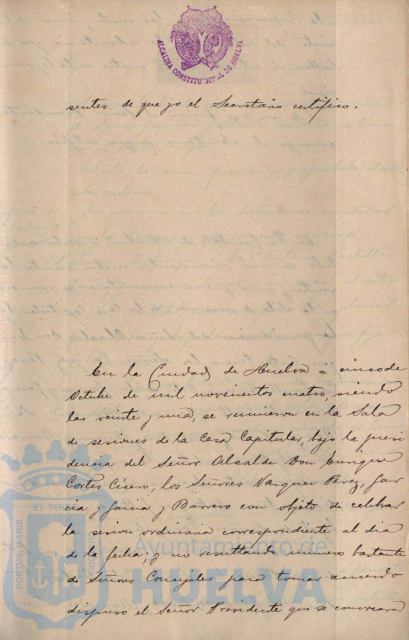 ALCALDIA CONSTITUCIONAL DE HUELVA
sentes de que yo el Secretario certifico.
En la Ciudad de Huelva a cinco de
Octubre de mil novecientos cuatro, siendo
las veinte y una, se reunieron en la Sala
de sesiones de la Casa Capitular, bajo la presi
dencia del Señor Alcalde Don Enrique
Cortes Cisero, los Señores Vazquez Perez, Gar
cia y Garcia y Barrero con objeto de celebrar
la sesion ordinaria correspondiente al dia
de la fecha; y no resultando número bastante
de Señores Concejales para tomar acuerdo
dispuso el Señor Presidente que se convocara
PORTUS MARIS
Ayuntamiento de
HUELVA